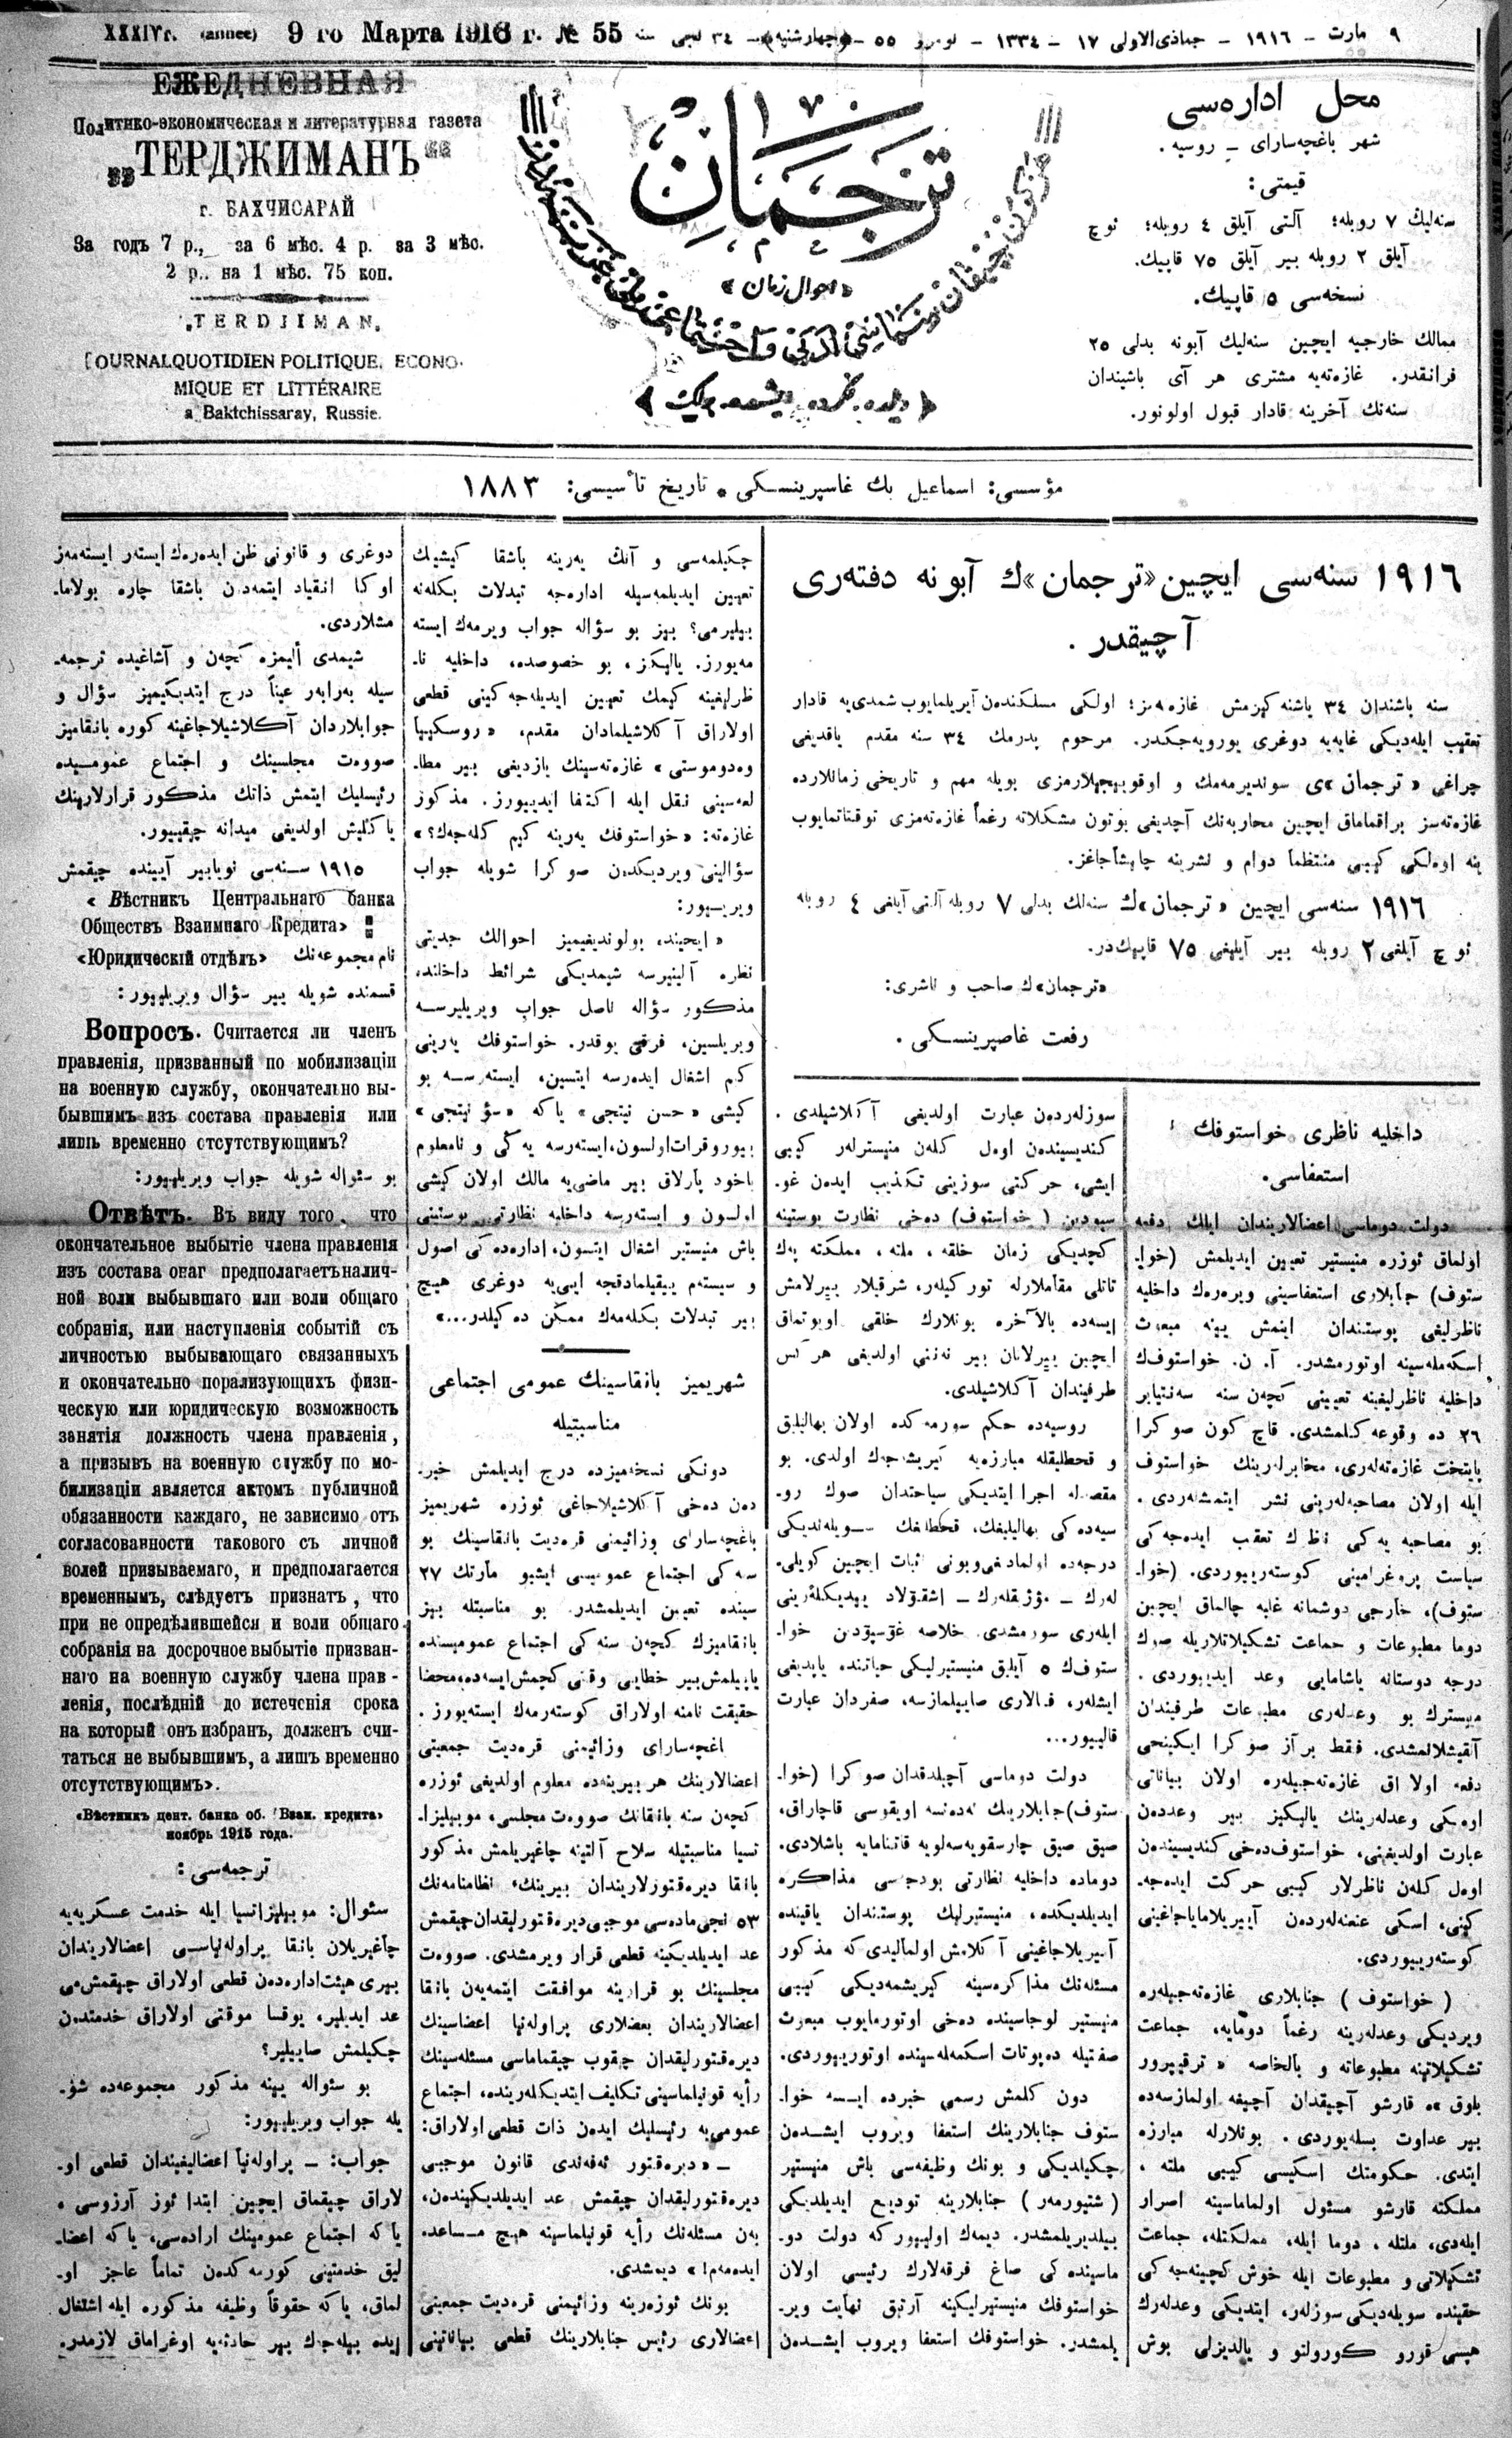 XXXIV г. (annee) 9 го Марта 1916 г. № 55
٩ مارت – ١٩١٦ – جماذی‌الاولی ١٧ – ١٣٣٤ – نومرو ٥٥ – «چهارشنبه» – ٣٤ نجی سنه
ЕЖЕДНЕВНАЯ
Политико-экономическая и литературная газета
„ТЕРДЖИМАНЪ“
г. БАХЧИСАРАЙ
За годъ 7 р., за 6 мѣс. 4 р. за 3 мѣс.
2 р.. на 1 мѣс. 75 коп.
„TERDJIMAN„
JOURNALQUOTIDIEN POLITIQUE, ECONO-
MIQUE ET LITTÉRAIRE
a Baktchissaray, Russie.
ترجمان
«احوال زمان»
محل اداره‌سی
شهر باغچه‌سارای – روسیه.
قیمتی:
سنه‌لیک ٧ روبله؛ آلتی آیلق ٤ روبله؛ ئوچ
آیلق ٢ روبله بیر آیلق ٧٥ قاپیك.
نسخه‌سی ٥ قاپیك.
ممالك خارجیه ایچین سنه‌لیك آبونه بدلی ٢٥
فرانقدر. غازه‌ته‌یه مشتری هر آی باشیندان
سنه‌نك آخرینه قادار قبول اولونور.
مؤسسی: اسماعیل بك غاسپرینسکی • تاریخ تأسیسی: ١٨٨٣
١٩١٦ سنه‌سی ایچین «ترجمان»ك آبونه دفته‌ری
آچیقدر.
سنه باشندان ٣٤ یاشنه کیرمش غازه‌ته‌مز؛ اولکی مسلکندەن آیریلمایوب شمدی‌یه قادار
تعقیب ایله‌دیکی غایه‌یه دوغری یورویه‌جکدر. مرحوم پدرمك ٣٤ سنه مقدم یاقدیغی
چراغی «ترجمان»ی سوندیرمه‌مك و اوقویجیلارمزی بویله مهم و تاریخی زمانلارده
غازه‌ته‌سز براقماماق ایچین محاربه‌نك آچدیغی بوتون مشکلاته رغماً غازه‌ته‌مزی توقتاتمایوب
ینه اوه‌لکی کیبی منتظماً دوام و نشرینه چاپشاجاغز.
١٩١٦ سنه‌سی ایچین «ترجمان»ك سنه‌لك بدلی ٧ روبله آلتی آیلغی ٤ روبله
ئوچ آیلغی ٢ روبله بیر آیلیغی ٧٥ قاپیك‌در.
«ترجمان»ك صاحب و ناشری:
رفعت غاصپرینسکی.
داخلیه ناظری خواستوفك
استعفاسی.
دولت دوماسی اعضالاریندان ایلك دفعه
اولماق ئوزره منیستیر تعیین ایدیلمش (خوا-
ستوف) جنابلاری استعفاسینی ویره‌رەك داخلیه
ناظرلیغی پوستندان اینمش یینه مبعوث
اسکه‌مله‌سینه اوتورمشدر. آ. ن. خواستوفك
داخلیه ناظرلیغینه تعیینی کچه‌ن سنه سه‌نتیابر
٢٦ ده وقوعه کلمشدی. قاچ کون صوکرا
پایتخت غازه‌ته‌لەری، مخابرلەرینك خواستوف
ایله اولان مصاحبه‌لەرینی نشر ایتمشلەردی.
بو مصاحبه یەکی ناظرك تعقب ایده‌جەکی
سیاست پروغرامینی کوستەرییوردی. (خوا-
ستوف)، خارجی دوشمانه غلبه چالماق ایچین
دوما مطبوعات و جماعت تشکیلاتلاریله صوك
درجه دوستانه یاشامایی وعد ایدییوردی.
منیسترك بو وعدلەری مطبوعات طرفیندان
آلقیشلانمشدی. فقط براز صوکرا ایکینجی
دفعه اولاراق غازه‌ته‌جیلەره اولان بیاناتی
اوەلکی وعدلەرینك یالیکیز بیر وعددەن
عبارت اولدیغنی، خواستوف دەخی کندیسیندەن
اوەل کلەن ناظرلار کیبی حرکت ایدەجە-
کینی، اسکی عنعنەلەردەن آییریلامایاجاغینی
کوستەرییوردی.
(خواستوف) جنابلاری غازه‌ته‌جیلەره
ویردیکی وعدلەرینه رغماً دومایه، جماعت
تشکیلاتینه مطبوعاته و بالخاصه «ترقیپرور
بلوق»ه قارشو آچیقدان آچیغه اولمازسەده
بیر عداوت بسلەیوردی. بونلارله مبارزه
ایتدی. حکومتك اسکیسی کیبی ملته،
مملکته قارشو مسئول اولماماسینه اصرار
ایلەدی، ملتله، دوما ایله، مملکتله، جماعت
تشکیلاتی و مطبوعات ایله خوش کچینەجەکی
حقینده سویلەدیکی سوزلەر، ایتدیکی وعدلەرك
هپسی قورو کورولتو و یالدیزلی بوش
سوزلەردەن عبارت اولدیغی آکلاشیلدی.
کندیسیندەن اول کلەن منیسترلەر کیبی
ایشی، حرکتی سوزینی تکذیب ایدەن غو-
سپودین (خواستوف) دەخی نظارت پوستینه
کچدیکی زمان خلقه، ملته، مملکته پەك
تاتلی مقاملارله تورکیلەر، شرقیلار بیرلامش
ایسەده بالآخره بونلارك خلقی اویوتماق
ایچین بیرلانان بیر نەننی اولدیغی هرکس
طرفیندان آکلاشیلدی.
روسیەده حکم سورمەکده اولان بهالیلق
و قحطلیقله مبارزەیه کیریشەجەك اولدی. بو
مقصدله اجرا ایتدیکی سیاحتدان صوك رو-
سیەدەکی بهالیلیغك، قحطلغك سویلەندیکی
درجەده اولمادیغی و بونی اثبات ایچین کویلی-
ایلەری سورمشدی. خلاصه غوسپودین خوا-
ستوفك ٥ آیلیق منیسترلیکی حیاتنده یاپدیغی
ایشلەر، فنالاری صاییلمازسه، صفردان عبارت
قالییور...
دولت دوماسی آچیلدقدان صوکرا (خوا-
ستوف) جنابلارینك نەدەنسه اویقوسی قاچاراق،
صیق صیق چارسقویەسەلویه قاتنامایه باشلادی.
دوماده داخلیه نظارتی بودجەسی مذاکره
ایدیلدیکده، منیسترلیك پوستندان یاقینده
آییریلاجاغینی آکلامش اولمالیدی که مذکور
مسئلەنك مذاکرەسینه کیریشمەدیکی کیبی
منیستیر لوجاسینده دەخی اوتورمایوب مبعوث
صفتیله دەپوتات اسکمەلەسینده اوتورییوردی.
دون کلمش رسمی خبرده ایسه خوا-
ستوف جنابلارینك استعفا ویروب ایشدەن
چکیلدیکی و بونك وظیفەسی باش منیستیر
(شتیورمەر) جنابلارینه تودیع ایدیلدیکی
بیلدیریلمشدر. دیمەك اولییور که دولت دو-
ماسیندەکی صاغ فرقەلارك رئیسی اولان
خواستوفك منیسترلیکینه آرتیق نهایت ویر-
یلمشدر. خواستوفك استعفا ویروب ایشدەن
چکیلمەسی و آنك یەرینه باشقا کیشینك
تعیین ایدیلمەسیله ادارەجه تبدلات بکلەنه
بیلیرمی؟ بیز بو سؤاله جواب ویرمەك ایسته
مەیورز. یالیکز، بو خصوصده، داخلیه نا-
ظرلیغینه کیمك تعیین ایدیلەجەکینی قطعی
اولاراق آکلاشیلمادان مقدم، «روسکییا
وەدوموستی» غازەتەسینك یازدیغی بیر مطا-
لعەسینی نقل ایله اکتفا ایدییورز. مذکور
غازەته: «خواستوفك یەرینه کیم کلەجەك؟»
سؤالینی ویردیکدەن صوکرا شویله جواب
ویرییور:
«ایچینده بولوندیغیمیز احوالك جدیتی
نظره آلینیرسه شیمدیکی شرائط داخلنده
مذکور سؤاله ناصل جواب ویریلیرسه
ویریلسین، فرقی یوقدر. خواستوفك یەرینی
کیم اشغال ایدەرسه ایتسین، ایستەرسه بو
کیشی «حسن نیتجی» یاکه «سؤ نیتجی»
بیوروقرات اولسون، ایستەرسه یەکی و نامعلوم
یاخود پارلاق بیر ماضی‌یه مالك اولان کیشی
اولسون و ایستەرسه داخلیه نظارتی پوستینی
باش منیستیر اشغال ایتسون، ادارەدەکی اصول
و سیستەم ییقیلمادقجه ایی‌یه دوغری هیچ
بیر تبدلات بکلەمەك ممکن دەکیلدر...»
شهریمیز بانقاسینك عمومی اجتماعی
مناسبتیله
دونکی نسخەمیزده درج ایدیلمش خبر-
دەن دەخی آکلاشیلاجاغی ئوزره شهریمیز
باغچەسارای وزائیمنی قرەدیت بانقاسینك بو
سنەکی اجتماع عمومیسی ایشبو مارتك ٢٧
سینده تعیین ایدیلمشدر. بو مناسبتله بیز
بانقامیزك کچەن سنەکی اجتماع عمومیسنده
یاپیلمش بیر خطایی وقتی کچمش ایسەده، محضا
حقیقت نامنه اولاراق کوستەرمەك ایستەیورز.
باغچەسارای وزائیمنی قرەدیت جمعیتی
اعضالارینك هر بیرینەده معلوم اولدیغی ئوزره
کچەن سنه بانقانك صووەت مجلسی، موبیلیزا-
تسیا مناسبتیله سلاح آلتینه چاغیریلمش مذکور
بانقا دیرەقتورلاریندان بیرینك، نظامنامەنك
٥٣ نجی مادەسی موجبی دیرەقتورلیقدان چیقمش
عد ایدیلدیکینه قطعی قرار ویرمشدی. صووەت
مجلسینك بو قرارینه موافقت ایتمەیەن بانقا
اعضالاریندان بعضلاری پراولەنیا اعضاسینك
دیرەقتورلیقدان چیقوب چیقماماسی مسئلەسینك
رأیه قونیلماسینی تکلیف ایتدیکلەرینده، اجتماع
عمومی‌یه رئیسلیك ایدەن ذات قطعی اولاراق:
– «دیرەقتور ئەفەندی قانون موجبی
دیرەقتورلیقدان چیقمش عد ایدیلدیکیندەن،
بەن مسئلەنك رأیه قونیلماسینه هیچ مساعده
ایدەمەم!» دیمشدی.
بونك ئوزەرینه وزائیمنی قرەدیت جمعیتی
اعضالاری رئیس جنابلارینك قطعی بیاناتینی
دوغری و قانونی ظن ایدەرەك ایستەر ایستەمەز
اوکا انقیاد ایتمەدن باشقا چاره بولاما-
مشلاردی.
شیمدی ألیمزه کچەن و آشاغیده ترجمه-
سیله بەرابەر عیناً درج ایتدیکیمیز سؤال و
جوابلاردان آکلاشیلاجاغینه کوره بانقامیز
صووەت مجلسینك و اجتماع عمومیده
رئیسلیك ایتمش ذاتك مذکور قرارلارینك
یاکلیش اولدیغی میدانه چیقییور.
١٩١٥ سنەسی نویابیر آیینده چیقمش
«Вѣстникъ Центральнаго банка
Обществъ Взаимнаго Кредита»
نام مجموعەنك «Юридическій отдѣлъ»
قسمنده شویله بیر سؤال ویریلییور:
Вопросъ. Считается ли членъ
правленія, призванный по мобилизаціи
на военную службу, окончательно вы-
бывшимъ изъ состава правленія или
лишь временно отсутствующимъ?
بو سئواله شویله جواب ویریلییور:
Отвѣтъ. Въ виду того, что
окончательное выбытіе члена правленія
изъ состава онаг предполагаетъ налич-
ной воли выбывшаго или воли общаго
собранія, или наступленія событій съ
личностью выбывающаго связанныхъ
и окончательно порализующихъ физи-
ческую или юридическую возможность
занятія должность члена правленія,
а призывъ на военную службу по мо-
билизаціи является актомъ публичной
обязанности каждаго, не зависимо отъ
согласованности таковогo съ личной
волей призываемаго, и предполагается
временнымъ, слѣдуетъ признать, что
при не опредѣлившейся и воли общаго
собранія на досрочное выбытіе призван-
наго на военную службу члена прав-
ленія, послѣдній до истеченія срока
на который онъ избранъ, долженъ счи-
таться не выбывшимъ, а лишъ временно
отсутствующимъ».
«Вѣстникъ цент. банка об. Взаи. кредита»
ноябрь 1915 года.
ترجمەسی:
سئوال: موبیلیزاتسیا ایله خدمت عسکریەیه
چاغیریلان بانقا پراولەنیاسی اعضالاریندان
بیری هیئت ادارەدەن قطعی اولاراق چیقمش‌می
عد ایدیلیر، یوقسا موقتی اولاراق خدمتدەن
چکیلمش صاییلیر؟
بو سئواله یینه مذکور مجموعەده شؤ-
یله جواب ویریلییور:
جواب: – پراولەنیا اعضالیغیندان قطعی او-
لاراق چیقماق ایچین ابتدا ئوز آرزوسی،
یاکه اجتماع عمومینك ارادەسی، یاکه اعضا-
لیق خدمتینی کورمەکدەن تماماً عاجز او-
لماق، یاکه حقوقاً وظیفه مذکوره ایله اشتغال
ایده بیلەجك بیر حادثەیه اوغراماق لازمدر.